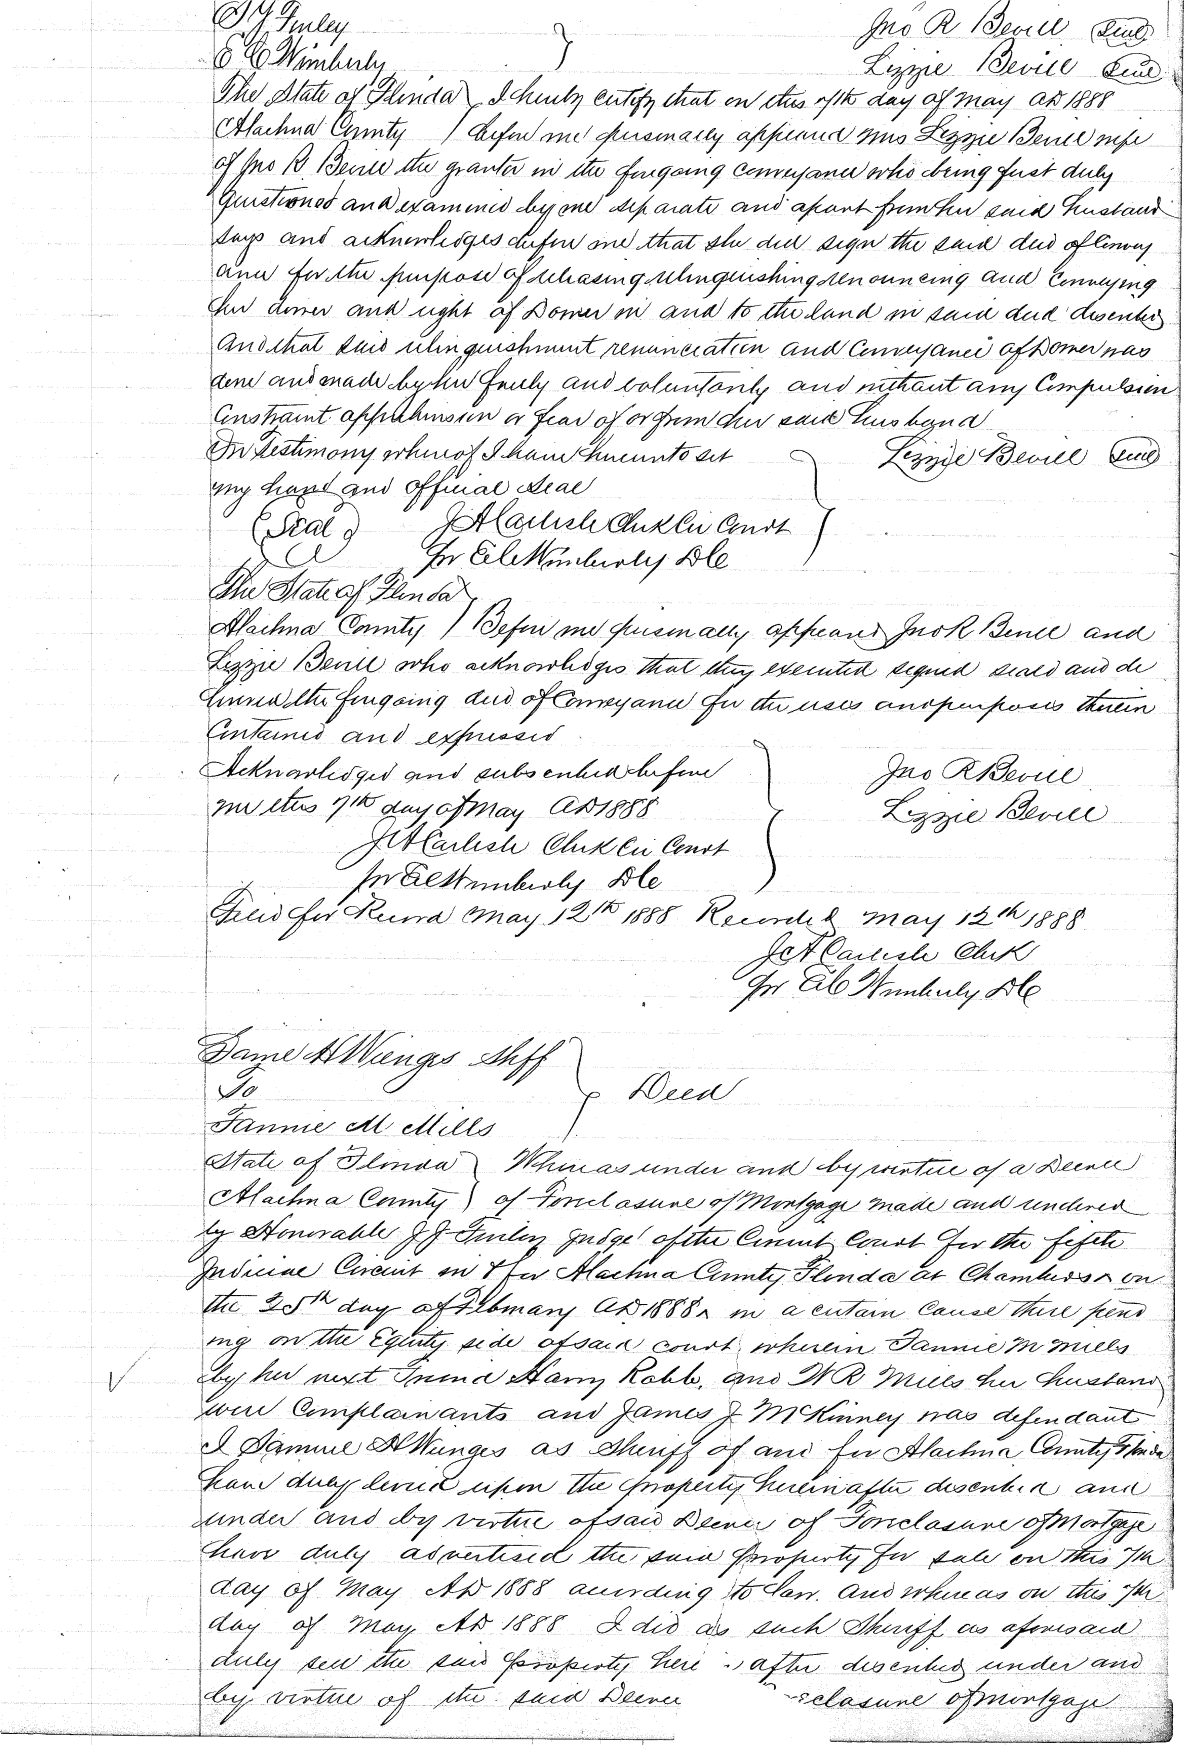 J J Finley } Jno R Bevill (Seal)
E C Wimberly Lizzie Bevill (Seal)
The State of Florida ) I hereby certify that on this 7th day of May AD 1888
Alachua County ) before me personally appeared Mrs Lizzie Bevill wife
of Jno R. Bevill the grantor in the foregoing conveyance who being first duly
questioned and examined by me separate and apart from her said husband
says and acknowledges before me that she did sign the said deed of Convey
ance for the purpose of releasing relinquishing renouncing and Conveying
her dower and right of Dower in and to the land in said deed described
And that said relinquishment renunciation and Conveyance of Dower was
done and made by her freely and voluntarily and without any Compulsion
Constraint apprehension or fear of or from her said husband
In Testimony whereof I have hereunto set } Lizzie Bevill (Seal)
my hand and official seal
(Seal) J A Carlisle Clerk Cir Court
pr E C Wimberly D C
The State of Florida )
Alachua County ) Before me personally appeared Jno R Bevill and
Lizzie Bevill who acknowledges that they executed signed seald and de
livered the foregoing deed of Conveyance for the uses and purposes therein
Contained and expressed
Acknowledged and subscribed before } Jno R Bevill
me this 7th day of May AD 1888 Lizzie Bevill
J A Carlisle Clerk Cir Court
pr E C Wimberly D C
Filed for Record May 12th 1888 Recorded May 12th 1888
J A Carlisle Clerk
pr E C Wimberly D C
Same H Wienges Shff
To } Deed
Fannie M. Mills
State of Florida ) Whereas under and by virtue of a Decree
Alachua County ) of Foreclosure of Mortgage made and rendered
by Honorable J J Finley Judge of the Circuit Court for the fifth
Judicial Circuit in & for Alachua County Florida at Chambers on
the 25th day of February AD 1888 in a certain Cause there pend
ing on the Equity side of said court wherein Fannie M Mills
by her next Friend Harry Robb, and W R Mills her husband
were Complainants and James J McKinney was defendant
I Samuel H Wienges as Sheriff of and for Alachua County Florida
have duly levied upon the property hereinafter described and
under and by virtue of said Decree of Foreclosure of Mortgage
have duly advertised the said property for sale on this 7th
day of May AD 1888 according to law. And whereas on this 7th
day of May AD 1888 I did as such Sheriff as aforesaid
duly sell the said property here after described under and
by virtue of the said Decree closure of mortgage